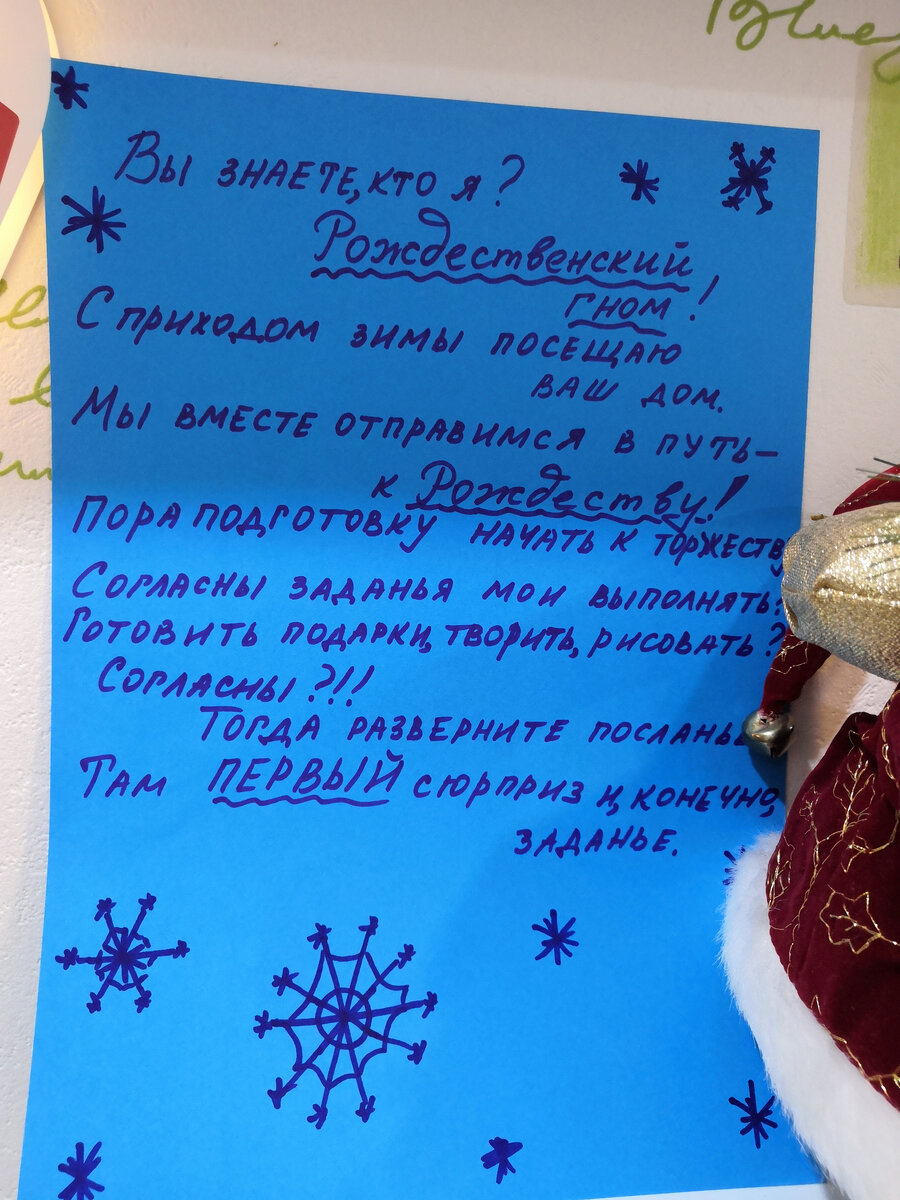 Вы знаете, кто я?
Рождественский
гном!
С приходом зимы посещаю
ваш дом.
Мы вместе отправимся в путь-
к Рождеству!
Пора подготовку начать к торжеству
Согласны заданья мои выполнять?
Готовить подарки, творить, рисовать?
Согласны?!!!
Тогда разверните посланье
Там ПЕРВЫЙ сюрприз и, конечно,
заданье.